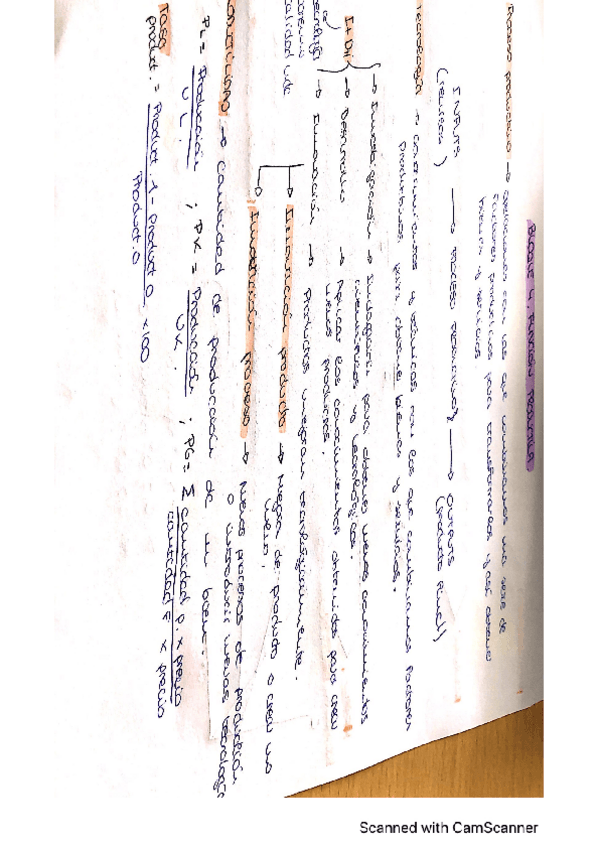 BLOQUE 4. FUNCIÓN PRODUCTIVA
Proceso productivo → operaciones con las que combinamos una serie de
factores productivos para transformarlos y así obtener
bienes y servicios
INPUTS → PROCESO PRODUCTIVO → OUTPUTS
(recursos) (producto final)
Tecnología → conocimientos y técnicas con los que combinamos factores
productivos para obtener bienes y servicios.
I+D+i
→ Investigación → Investigar para obtener nuevos conocimientos
científicos y tecnológicos.
→ Desarrollo → Aplicar los conocimientos obtenidos para crear
nuevos productos.
→ Innovación → Productos mejoran tecnológicamente.
Innovación producto → Mejora de producto o crear uno
nuevo.
Innovación proceso → Nuevos procesos de producción
o introducir nuevas tecnolog
→ Cantidad de producción de un bien.
PL = Producción / UL ; PK = Producción / UK ; PG = Σ cantidad P x precio / cantidad F x precio
Tasa
product. = Product 1 - Product 0 / Product. 0 x 100
Scanned with CamScanner